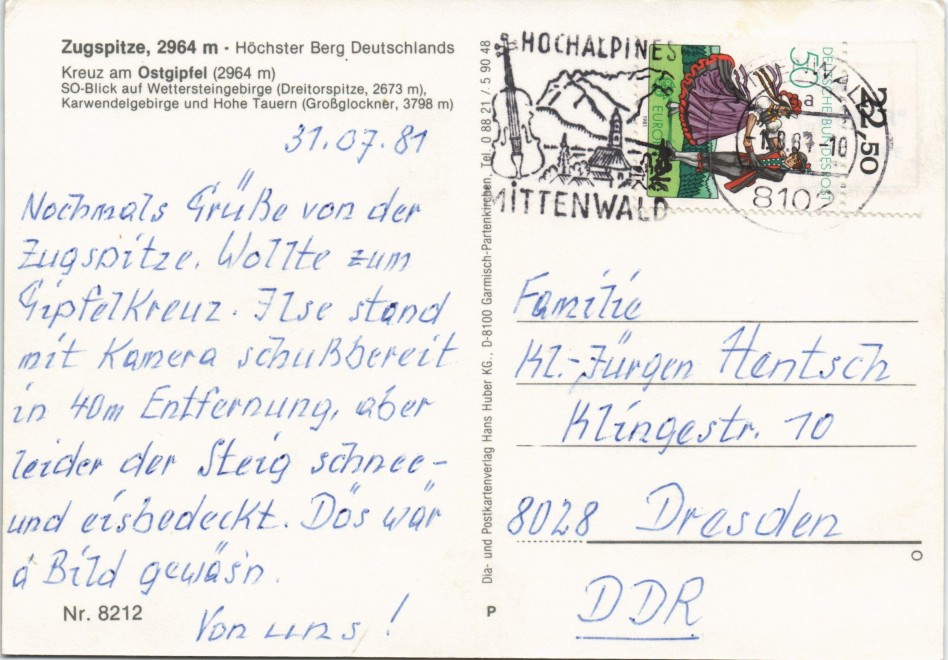 Zugspitze, 2964 m · Höchster Berg Deutschlands
Kreuz am Ostgipfel (2964 m)
SO-Blick auf Wettersteingebirge (Dreitorspitze, 2673 m),
Karwendelgebirge und Hohe Tauern (Großglockner, 3798 m)
31.07.81
Nochmals Grüße von der
Zugspitze. Wollte zum
Gipfelkreuz. Ilse stand
mit Kamera schußbereit
in 40m Entfernung, aber
leider der Steig schnee-
und eisbedeckt. Dös wär
a Bild gewäsn.
Von uns!
Nr. 8212
Dia- und Postkartenverlag Hans Huber KG., D-8100 Garmisch-Partenkirchen, Tel. 0 88 21 / 5 90 48
P
HOCHALPINES
MITTENWALD
DEUTSCHE BUNDESPOST
50
EUROPA
22,50
a
810
Familie
Kl.-Jürgen Hentsch
Klingestr. 10
8028 Dresden
DDR